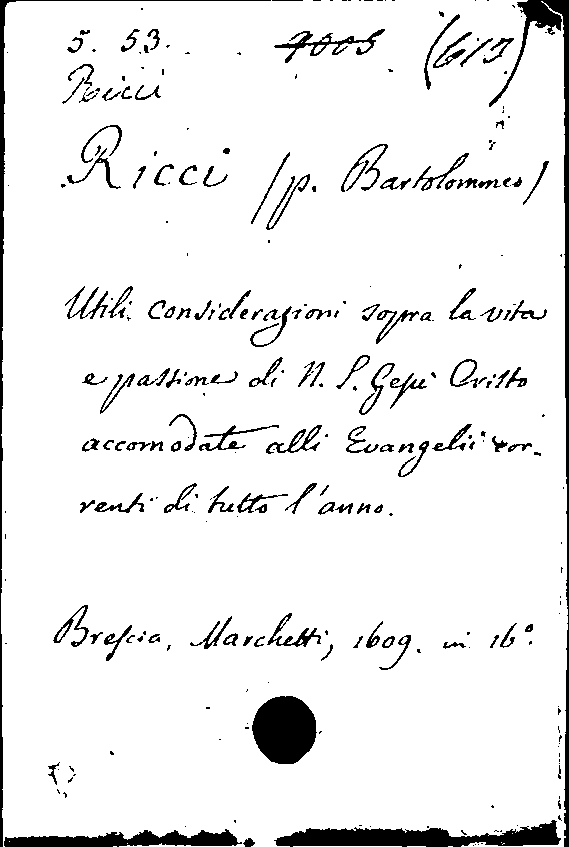 5. 53. 9005 (613)
Ricci
Ricci (p. Bartolommeo)
Utili considerazioni sopra la vita
e passione di N. S. Gesù Cristo
accomodate alli Evangelii cor-
renti di tutto l'anno.
Brescia, Marchetti, 1609. in 16°.